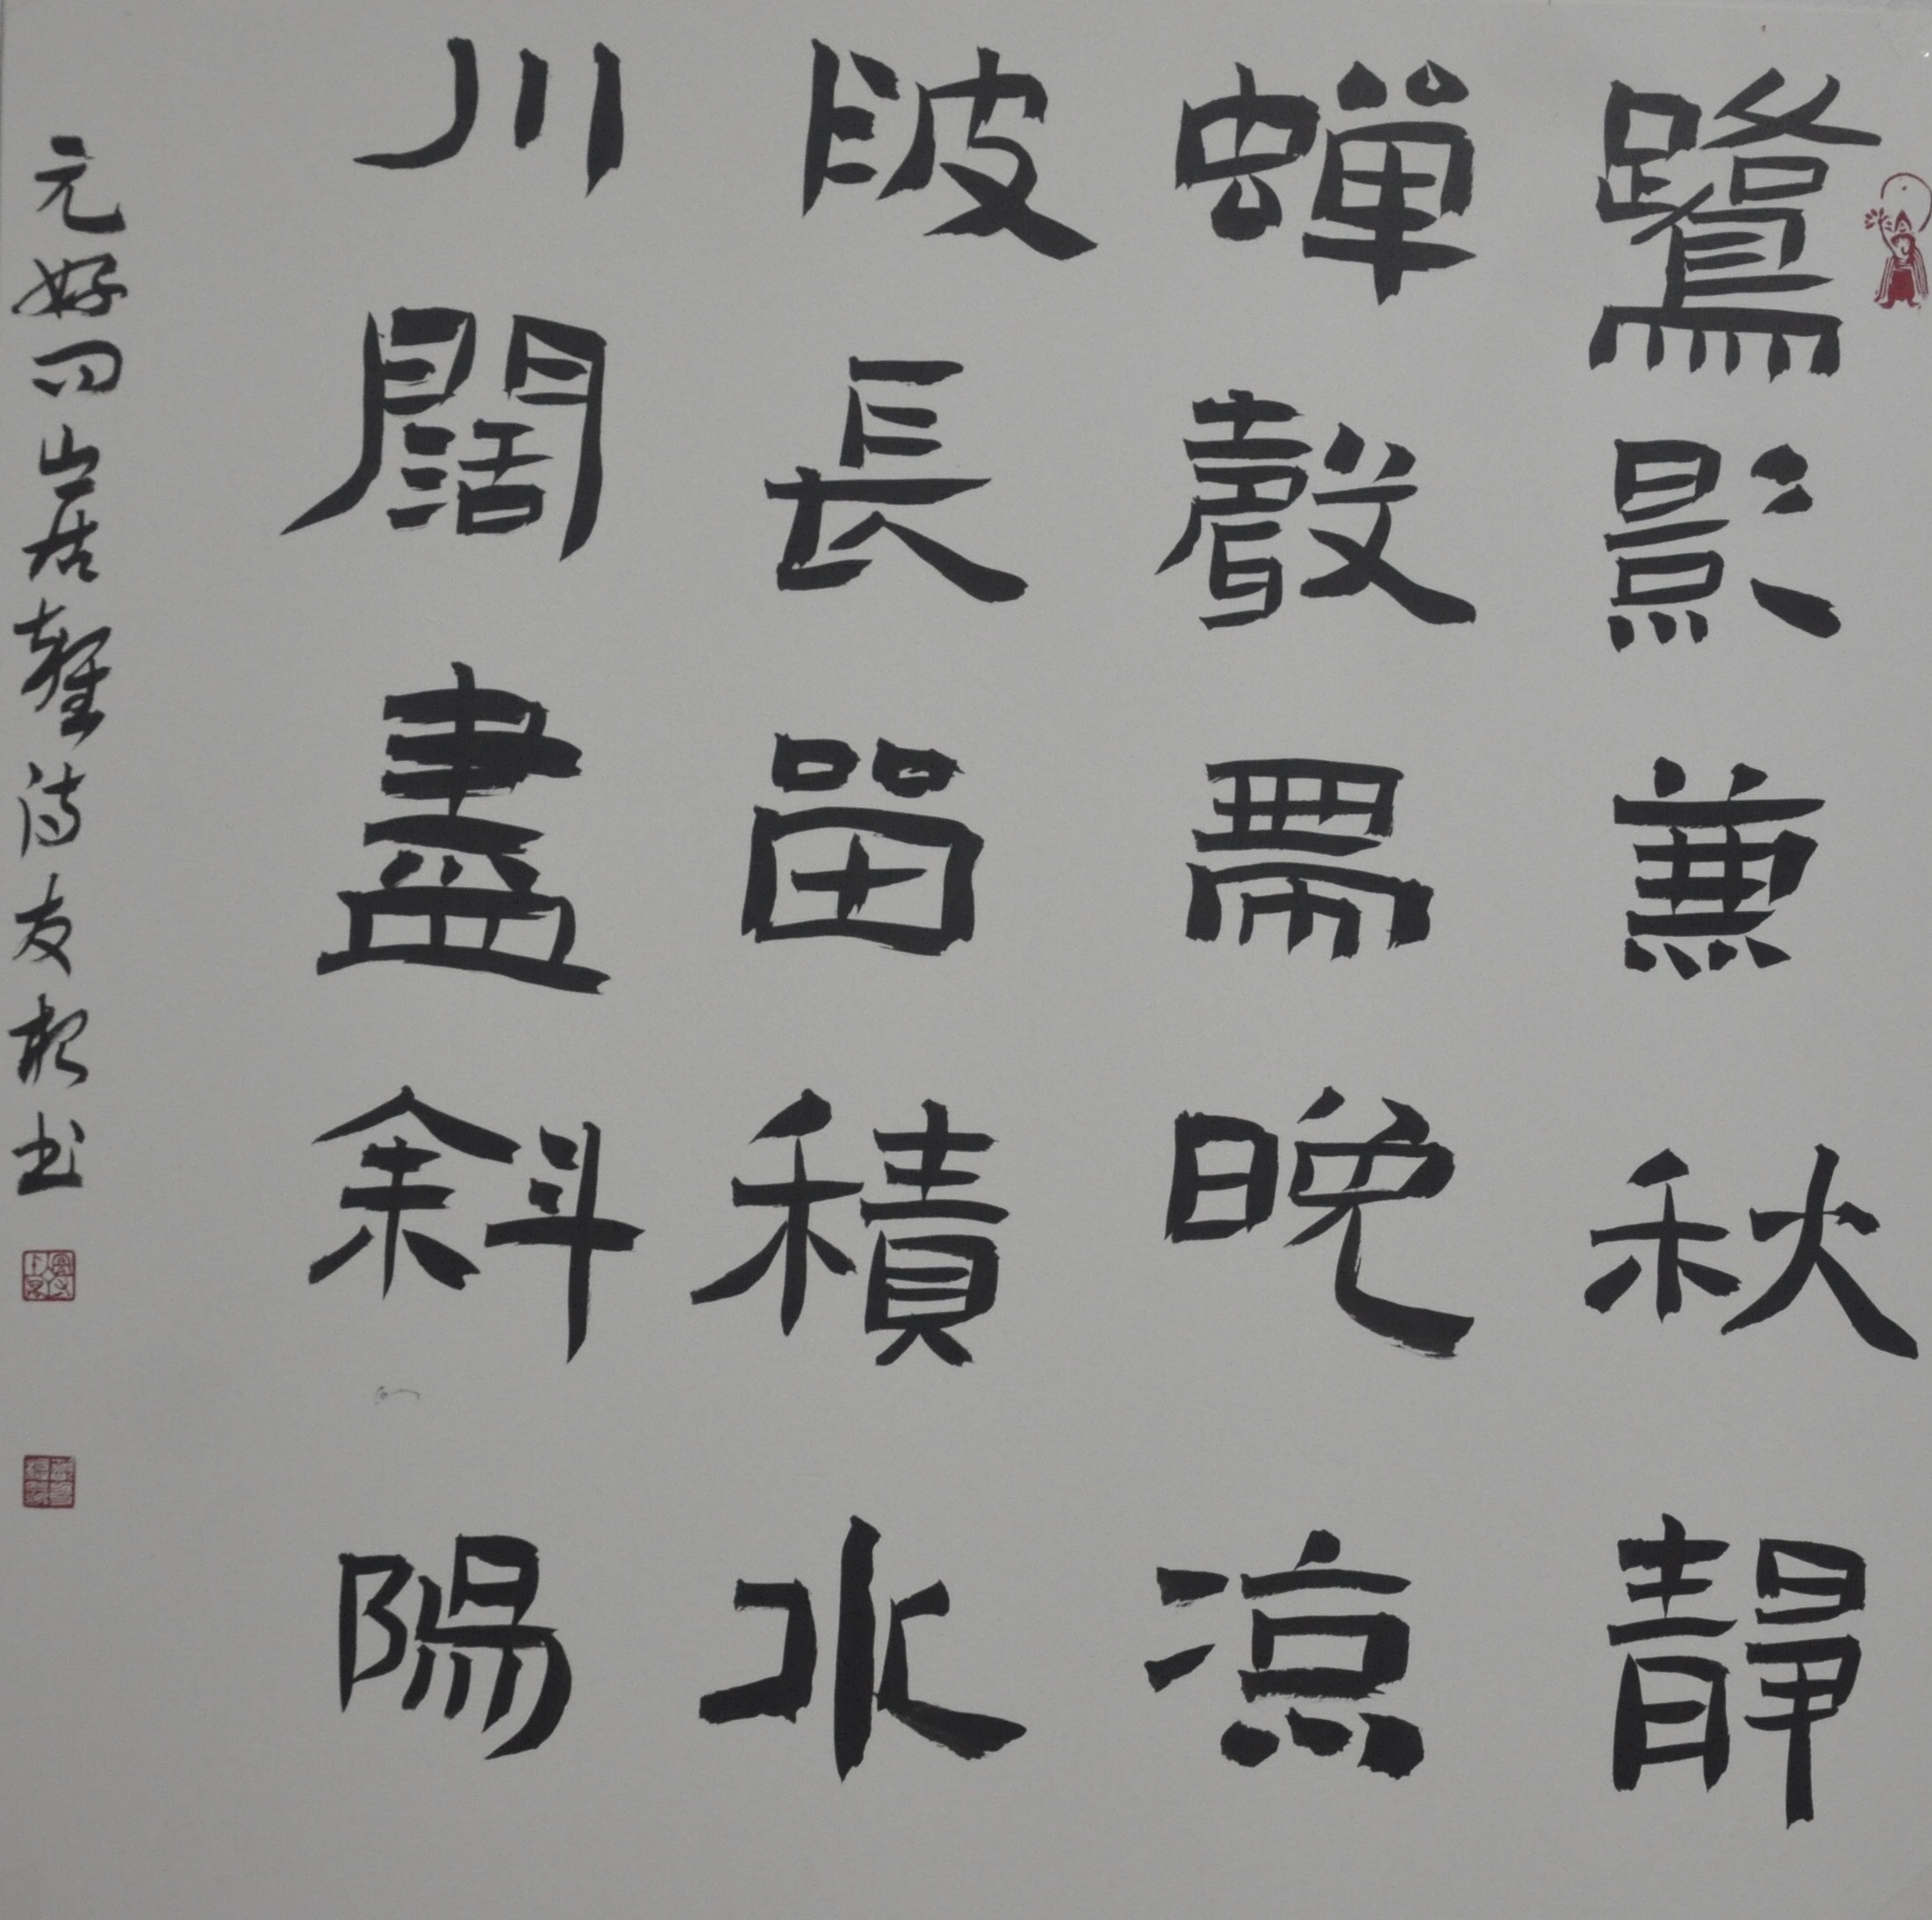 鷺影兼秋靜
蟬聲帶晚凉
陂長留積水
川闊盡斜陽
元好問山居
诗友
书